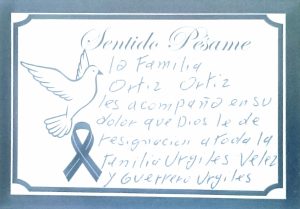 Sentido Pésame
La Familia
Ortiz Ortiz
les acompaña en su
dolor que Dios le de
resignacion a toda la
Familia Urgiles Velez
y Guerrero Urgiles